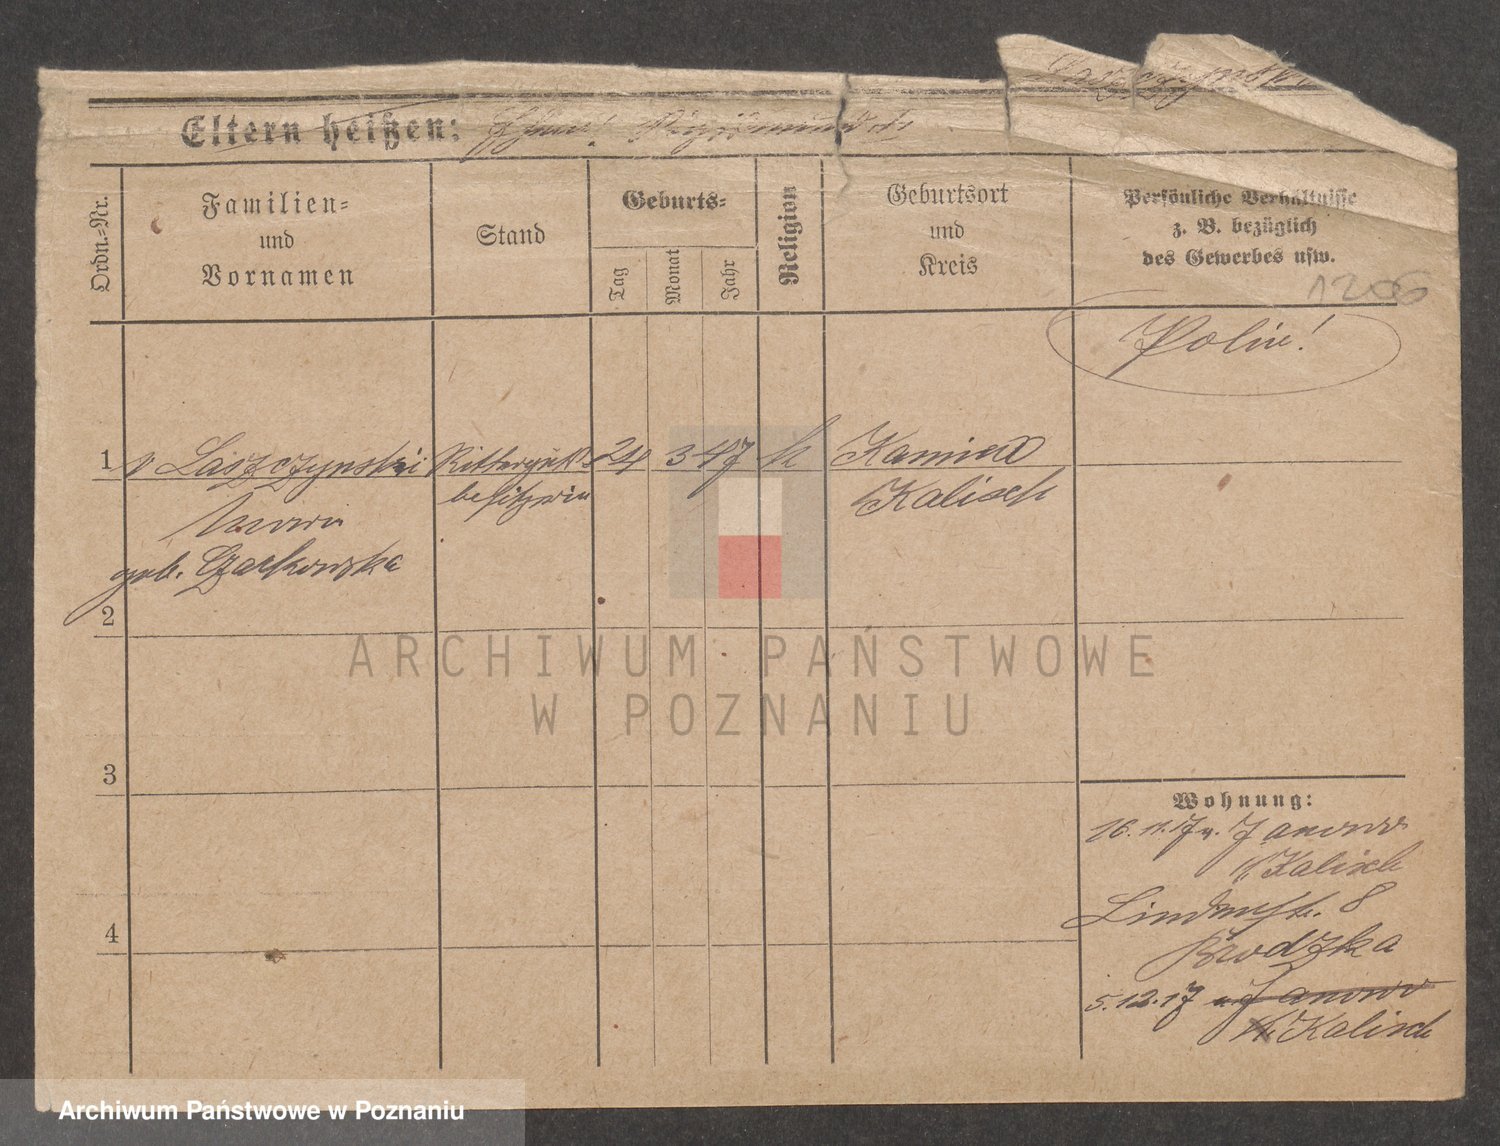 Laszczynski
Eltern heißen:
Ordn.-Nr.
Familien-
und
Vornamen
Stand
Geburts-
Tag
Monat
Jahr
Religion
Geburtsort
und
Kreis
Persönliche Verhältnisse
z. B. bezüglich
des Gewerbes usw.
1206
Polin!
1 v Laszczynski Ritterguts 24 3 47 k Kamien
besitzerin Kalisch
geb. Czarkowska
2
3
4
Wohnung:
16.11.17 v. Janowo
Kr Kalisch
Lindenstr. 8
Brodzka
5.12.17 n. Janowo
Kr. Kalisch
ARCHIWUM PAŃSTWOWE
W POZNANIU
Archiwum Państwowe w Poznaniu